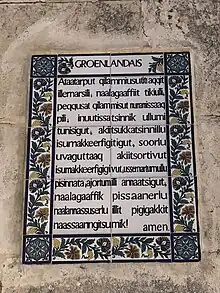 GROENLANDAIS
Ataatarput qilammiusutit aqqit
illernarsili, naalagaaffiit tikiuli,
pequsat qilammisut nunamissaaq
pili, inuutissatsinnik ullumi
tunisigut, akiitsukkatsinnillu
isumakkeerfigitigut, soorlu
uvaguttaaq akiitsortivut
isumakkeerfigigivut, ussernartumullu
pisinnata, ajortumilli annaatsigut,
naalagaaffik pissaanerlu
naalannassuserlu illit pigigakkit
naassaanngitsumik!
amen.